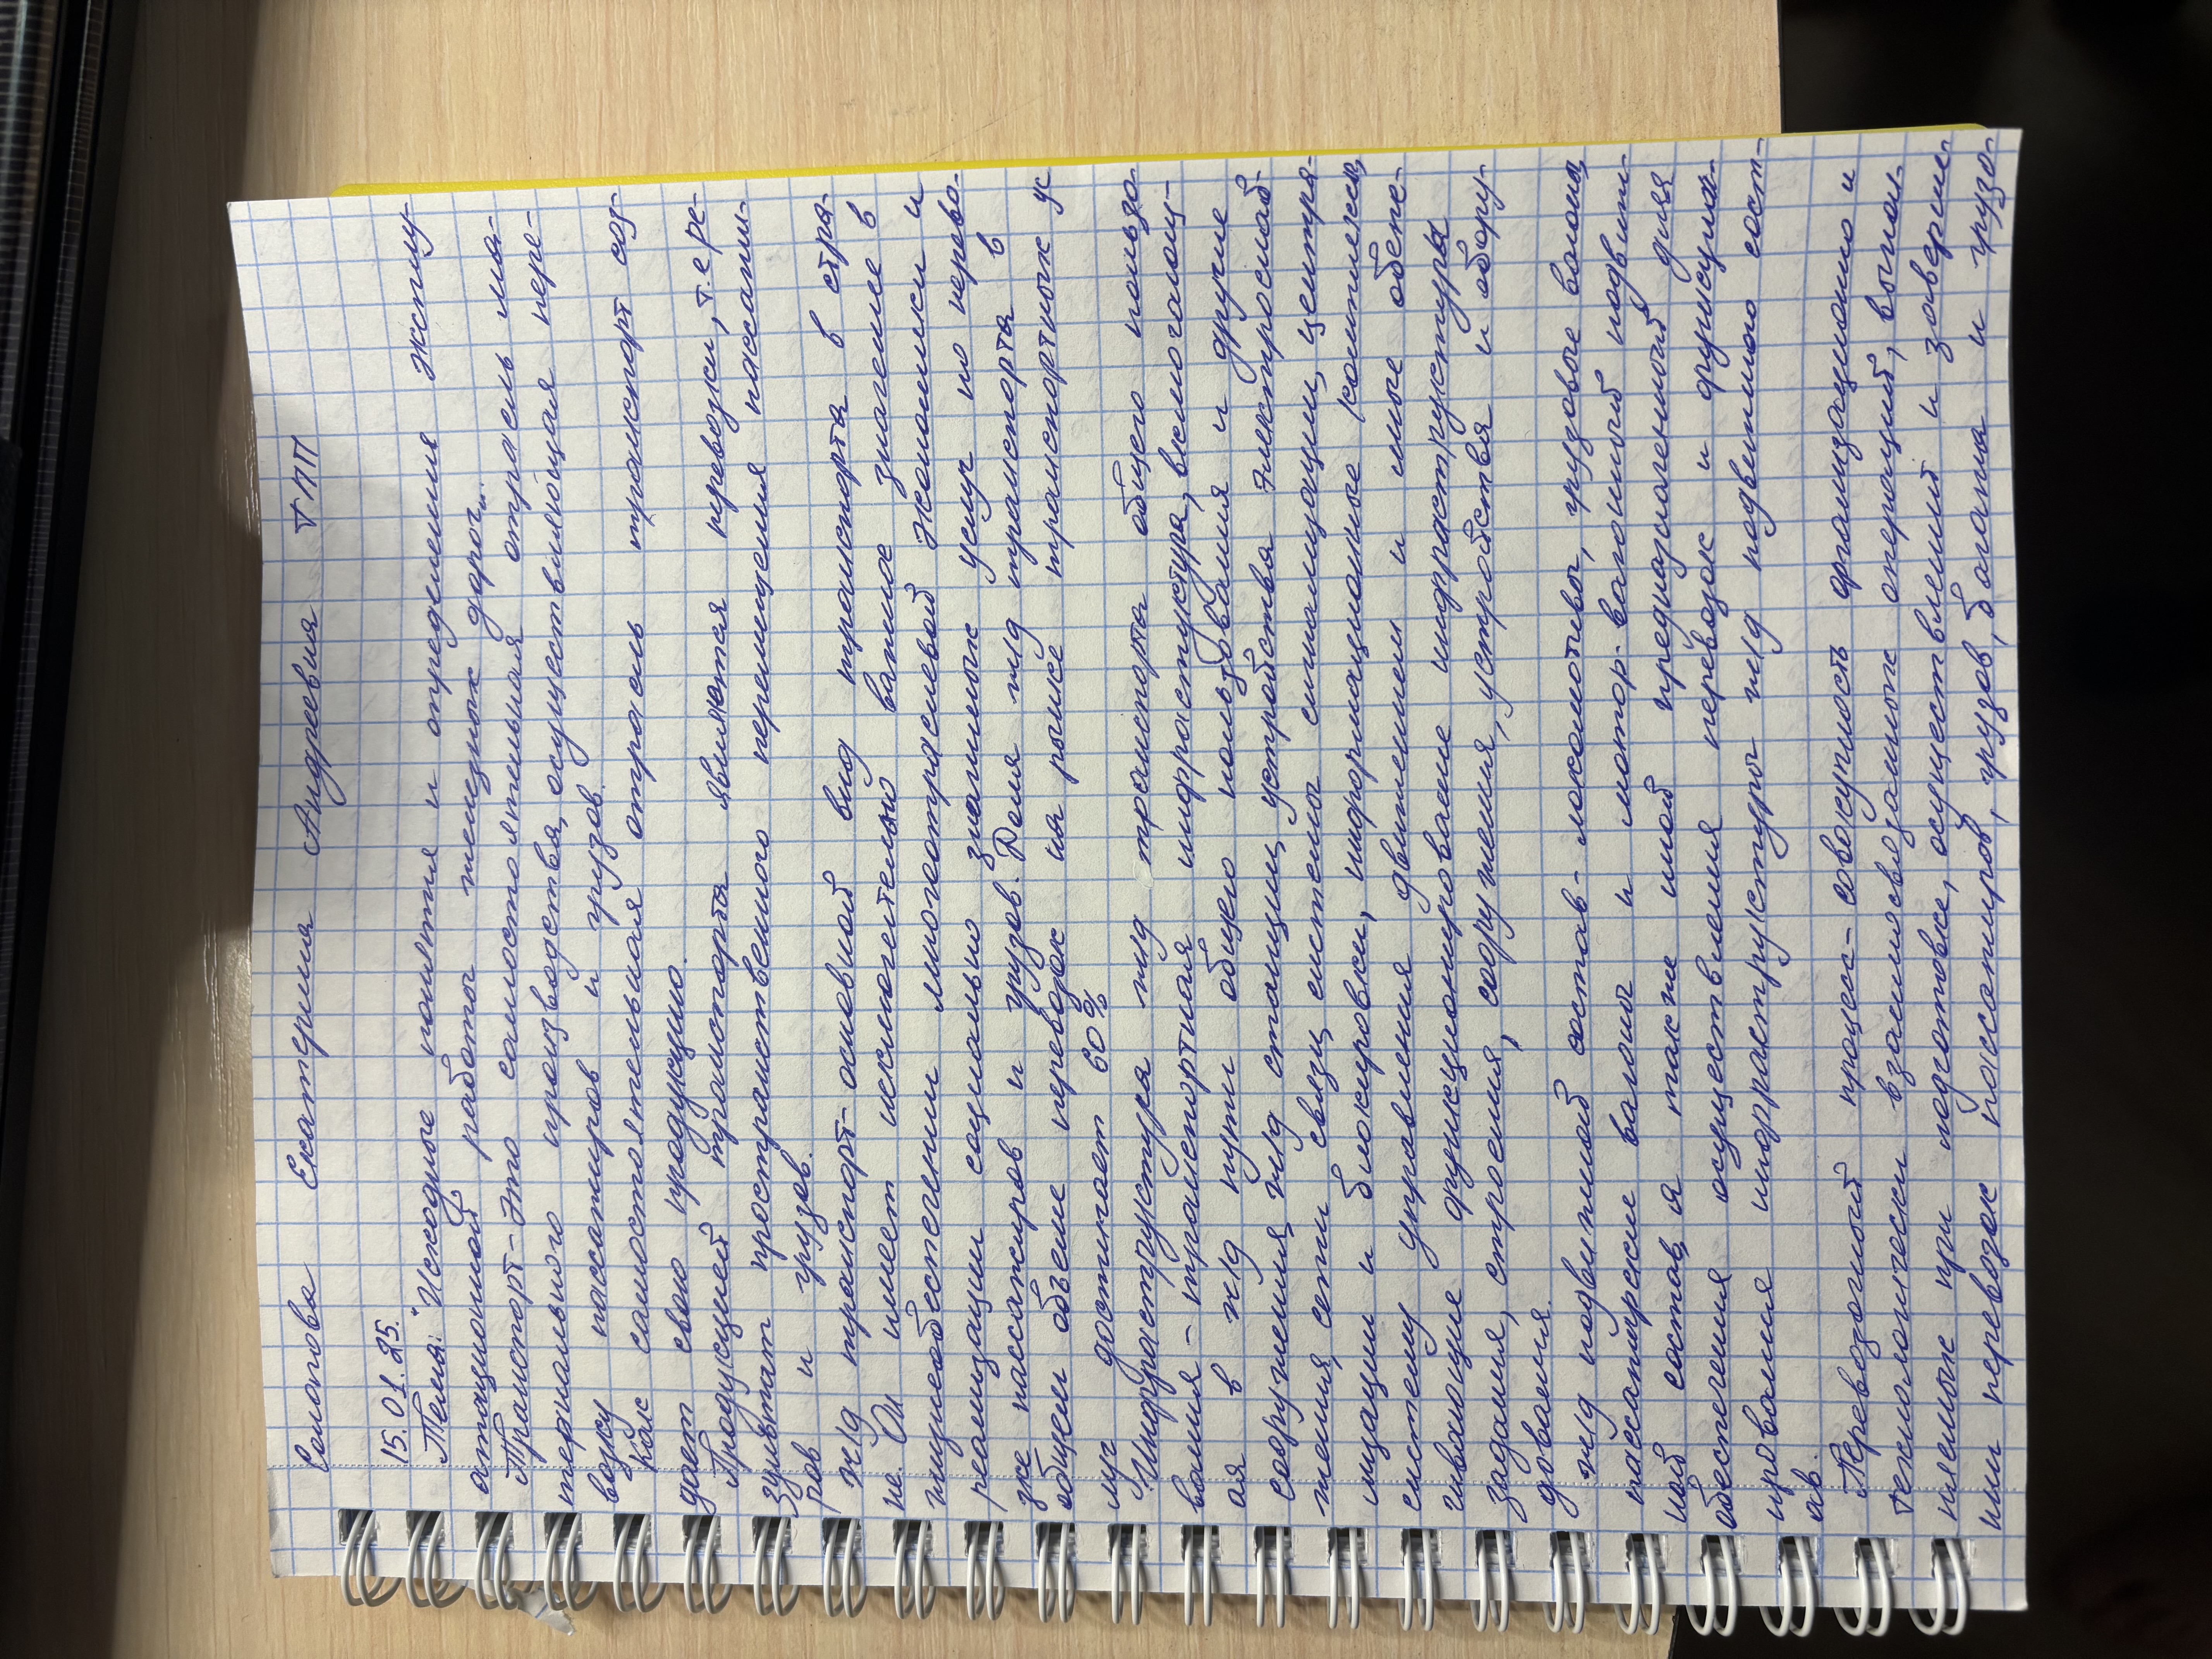 Солопова Екатерина Андреевна ТПП
15.01.25.
Тема: "Исходные понятия и определения эксплу-
атационной работы железных дорог".
Транспорт - Это самостоятельная отрасль ма-
териального производства, осуществляющая пере-
возку пассажиров и грузов.
Как самостоятельная отрасль транспорт соз-
дает свою продукцию.
Продукцией транспорта являются перевозки, т.е ре-
зультат пространственного перемещения пассажи-
ров и грузов.
Ж/д транспорт - основной вид транспорта в стра-
не. Он имеет исключительно важное значение в
жизнеобеспечении многоотраслевой экономики и
реализации социально значимых услуг по перево-
зке пассажиров и грузов. Доля ж/д транспорта в
общем объеме перевозок на рынке транспортных ус
луг достигает 60%
Инфраструктура ж/д транспорта общего пользо-
вания - транспортная инфраструктура, включающ-
ая в ж/д пути общего пользования и другие
сооружения, ж/д станции, устройства электроснаб-
жения, сети связи, системы сигнализации, центра-
лизации и блокировки, информационные комплексы,
систему управления движением и иные обеспе-
чивающие функционирование инфраструктуры
здания, строения, сооружения, устройства и обору-
дования.
ж/д подвижной состав - локомотивы, грузовые вагоны,
пассажирские вагоны и мотор-вагонный подвиж-
ной состав, а также иной предназначенный для
обеспечения осуществления перевозок и функцио-
нирования инфраструктуры ж/д подвижного сост-
ав.
Перевозочный процесс - совокупность организационно и
технологически взаимосвязанных операций, выпол-
няемых при подготовке, осуществлении и заверше-
нии перевозок пассажиров, грузов, багажа и грузо-